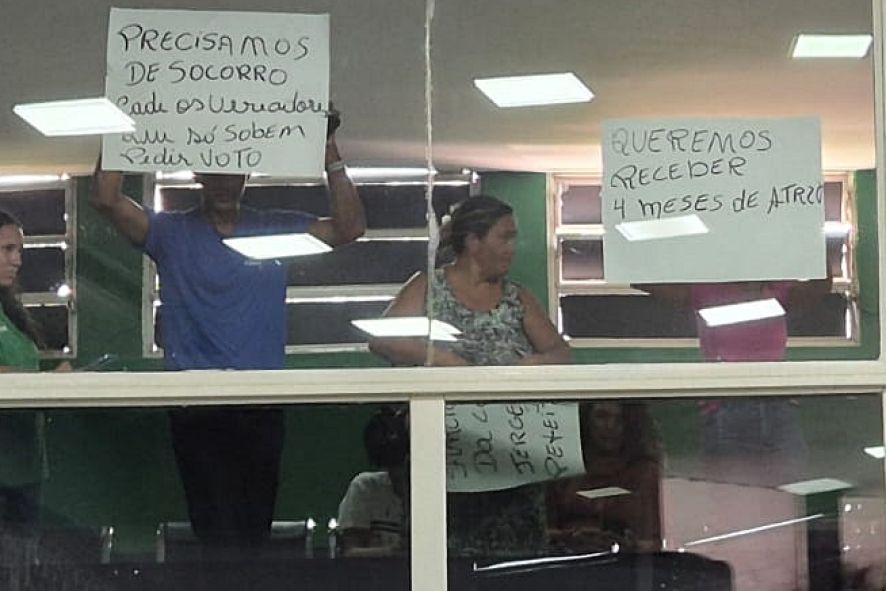 PRECISAMOS
DE SOCORRO
Cade os Vereadores
que só SOBEM
Pedir VOTO
QUEREMOS
RECEBER
4 MESES de ATRZO